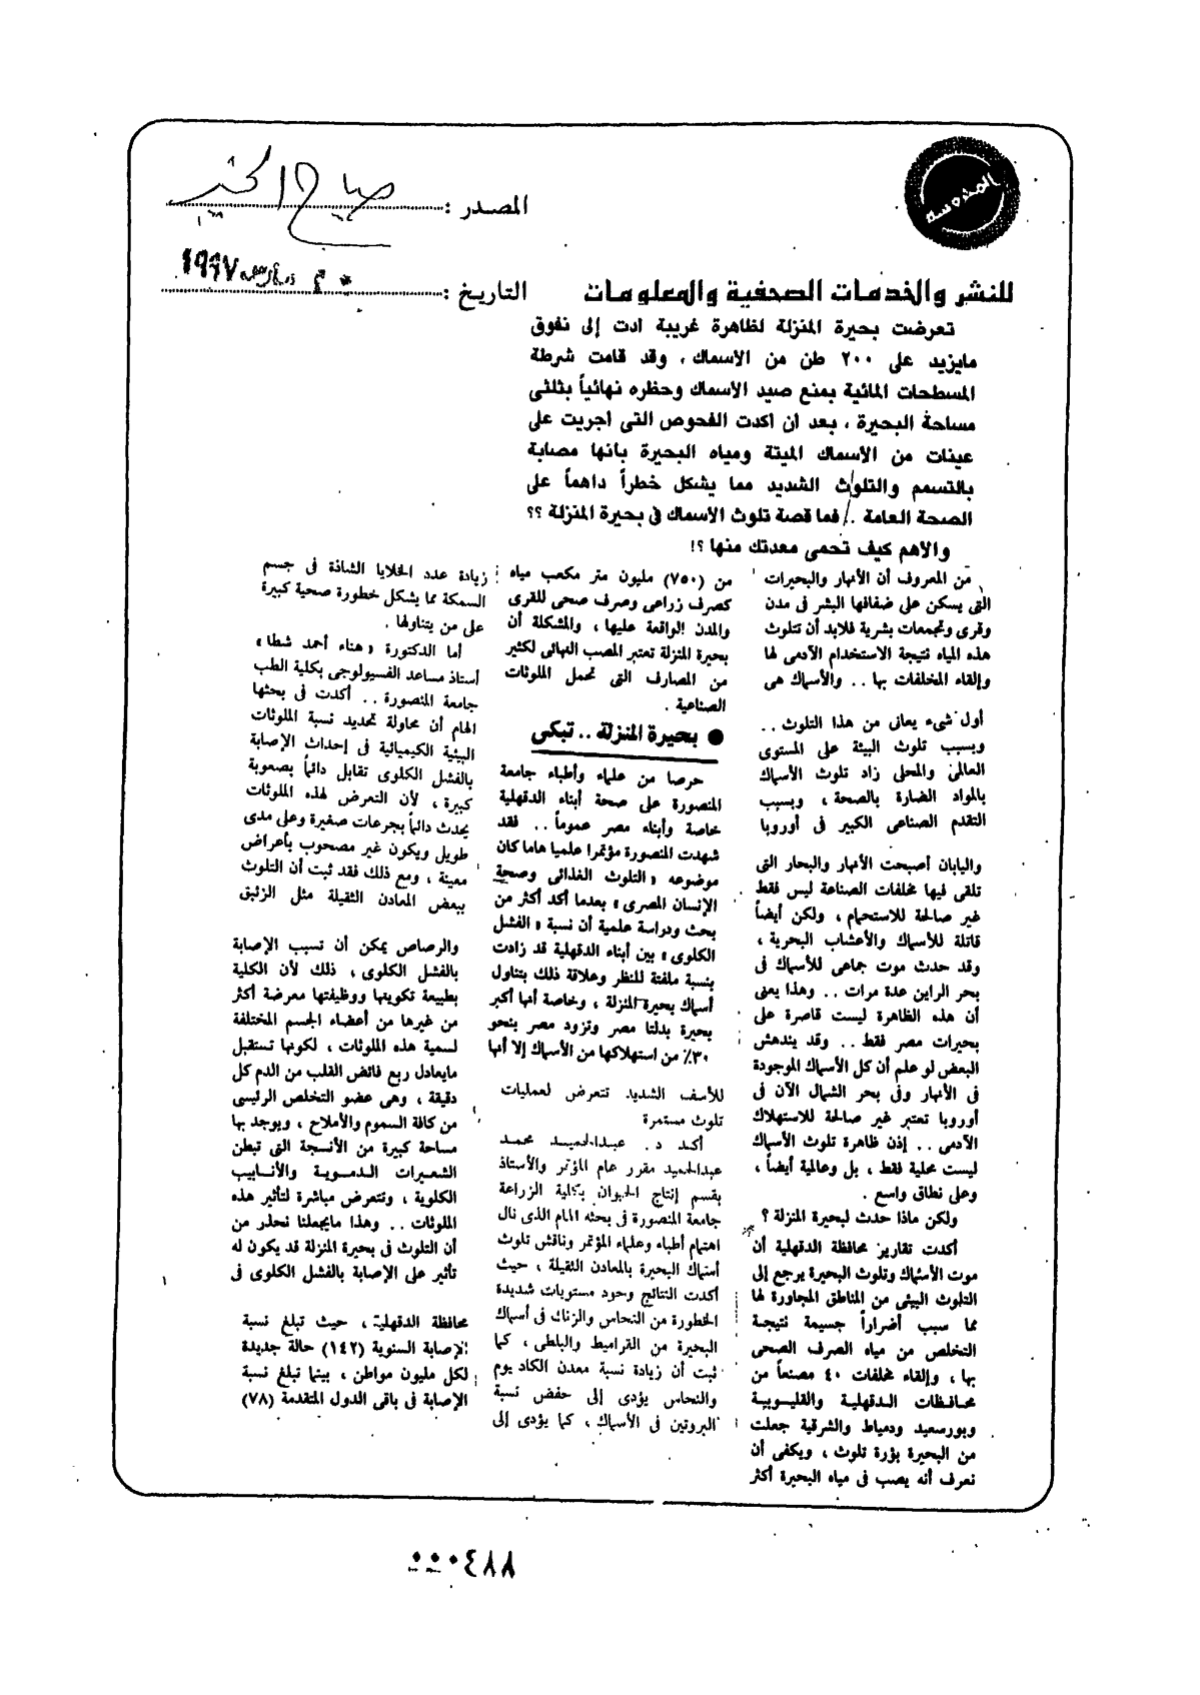 المحروسة
المصدر : صباح الخير
للنشر والخدمات الصحفية والمعلومات
التاريخ : مارس ١٩٩٧
تعرضت بحيرة المنزلة لظاهرة غريبة ادت إلى نفوق
مايزيد على ٢٠٠ طن من الأسماك ، وقد قامت شرطة
المسطحات المائية بمنع صيد الأسماك وحظره نهائياً بثلثى
مساحة البحيرة ، بعد ان اكدت الفحوص التى اجريت على
عينات من الأسماك الميتة ومياه البحيرة بانها مصابة
بالتسمم والتلوث الشديد مما يشكل خطراً داهماً على
الصحة العامة .. فما قصة تلوث الأسماك فى بحيرة المنزلة ؟؟
والأهم كيف تحمى معدتك منها ؟!
من المعروف أن الأنهار والبحيرات
التى يسكن على ضفافها البشر فى مدن
وقرى وتجمعات بشرية فلابد أن تتلوث
هذه المياه نتيجة الاستخدام الآدمى لها
وإلقاء المخلفات بها .. والأسماك هى
أول شىء يعانى من هذا التلوث ..
وبسبب تلوث البيئة على المستوى
العالمى والمحلى زاد تلوث الأسماك
بالمواد الضارة بالصحة ، وبسبب
التقدم الصناعى الكبير فى أوروبا
واليابان أصبحت الأنهار والبحار التى
تلقى فيها مخلفات الصناعة ليس فقط
غير صالحة للاستحمام ، ولكن أيضاً
قاتلة للأسماك والأعشاب البحرية ،
وقد حدث موت جماعى للأسماك فى
بحر الراين عدة مرات .. وهذا يعنى
أن هذه الظاهرة ليست قاصرة على
بحيرات مصر فقط .. وقد يندهش
البعض لو علم أن كل الأسماك الموجودة
فى الأنهار وفى بحر الشمال الآن فى
أوروبا تعتبر غير صالحة للاستهلاك
الآدمى .. إذن ظاهرة تلوث الأسماك
ليست محلية فقط ، بل وعالمية أيضاً ،
وعلى نطاق واسع .
ولكن ماذا حدث لبحيرة المنزلة ؟
أكدت تقارير محافظة الدقهلية أن
موت الأسماك وتلوث البحيرة يرجع إلى
التلوث البيئى من المناطق المجاورة لها
مما سبب أضراراً جسيمة نتيجة
التخلص من مياه الصرف الصحى
بها ، وإلقاء مخلفات ٤٠ مصنعاً من
محافظات الدقهلية والقليوبية
وبورسعيد ودمياط والشرقية جعلت
من البحيرة بؤرة تلوث ، ويكفى أن
نعرف أنه يصب فى مياه البحيرة أكثر
من (٧٥٠) مليون متر مكعب مياه
كصرف زراعى وصرف صحى للقرى
والمدن الواقعة عليها ، والمشكلة أن
بحيرة المنزلة تعتبر المصب النهائى لكثير
من المصارف التى تحمل الملوثات
الصناعية .
● بحيرة المنزلة .. تبكى
حرصا من علماء وأطباء جامعة
المنصورة على صحة أبناء الدقهلية
خاصة وأبناء مصر عموماً .. فقد
شهدت المنصورة مؤتمرا علميا هاما كان
موضوعه « التلوث الغذائى وصحة
الإنسان المصرى » بعدما أكد أكثر من
بحث ودراسة علمية أن نسبة « الفشل
الكلوى » بين أبناء الدقهلية قد زادت
بنسبة ملفتة للنظر وعلاقة ذلك بتناول
أسماك بحيرة المنزلة ، وخاصة أنها أكبر
بحيرة بدلتا مصر وتزود مصر بنحو
٣٠٪ من استهلاكها من الأسماك إلا أنها
للأسف الشديد تتعرض لعمليات
تلوث مستمرة
أكد د. عبدالحميد محمد
عبدالحميد مقرر عام المؤتمر والأستاذ
بقسم إنتاج الحيوان بكلية الزراعة
جامعة المنصورة فى بحثه الهام الذى نال
اهتمام أطباء وعلماء المؤتمر وناقش تلوث
أسماك البحيرة بالمعادن الثقيلة ، حيث
أكدت النتائج وجود مستويات شديدة
الخطورة من النحاس والزنك فى أسماك
البحيرة من القراميط والبلطى ، كما
ثبت أن زيادة نسبة معدن الكادميوم
والنحاس يؤدى إلى خفض نسبة
البروتين فى الأسماك ، كما يؤدى إلى
زيادة عدد الخلايا الشاذة فى جسم
السمكة مما يشكل خطورة صحية كبيرة
على من يتناولها .
أما الدكتورة « هناء أحمد شطا »
أستاذ مساعد الفسيولوجى بكلية الطب
جامعة المنصورة .. أكدت فى بحثها
الهام أن محاولة تحديد نسبة الملوثات
البيئية الكيميائية فى إحداث الإصابة
بالفشل الكلوى تقابل دائماً بصعوبة
كبيرة ، لأن التعرض لهذه الملوثات
يحدث دائماً بجرعات صغيرة وعلى مدى
طويل ويكون غير مصحوب بأعراض
معينة ، ومع ذلك فقد ثبت أن التلوث
ببعض المعادن الثقيلة مثل الزئبق
والرصاص يمكن أن تسبب الإصابة
بالفشل الكلوى ، ذلك لأن الكلية
بطبيعة تكوينها ووظيفتها معرضة أكثر
من غيرها من أعضاء الجسم المختلفة
لسمية هذه الملوثات ، لكونها تستقبل
مايعادل ربع فائض القلب من الدم كل
دقيقة ، وهى عضو التخلص الرئيسى
من كافة السموم والأملاح ، ويوجد بها
مساحة كبيرة من الأنسجة التى تبطن
الشعيرات الدموية والأنابيب
الكلوية ، وتتعرض مباشرة لتأثير هذه
الملوثات .. وهذا مايجعلنا نحذر من
أن التلوث فى بحيرة المنزلة قد يكون له
تأثير على الإصابة بالفشل الكلوى فى
محافظة الدقهلية ، حيث تبلغ نسبة
الإصابة السنوية (١٤٢) حالة جديدة
لكل مليون مواطن ، بينما تبلغ نسبة
الإصابة فى باقى الدول المتقدمة (٧٨)